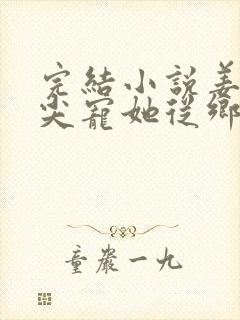 完結小說姜
尖寵她從鄉
童嚴一九